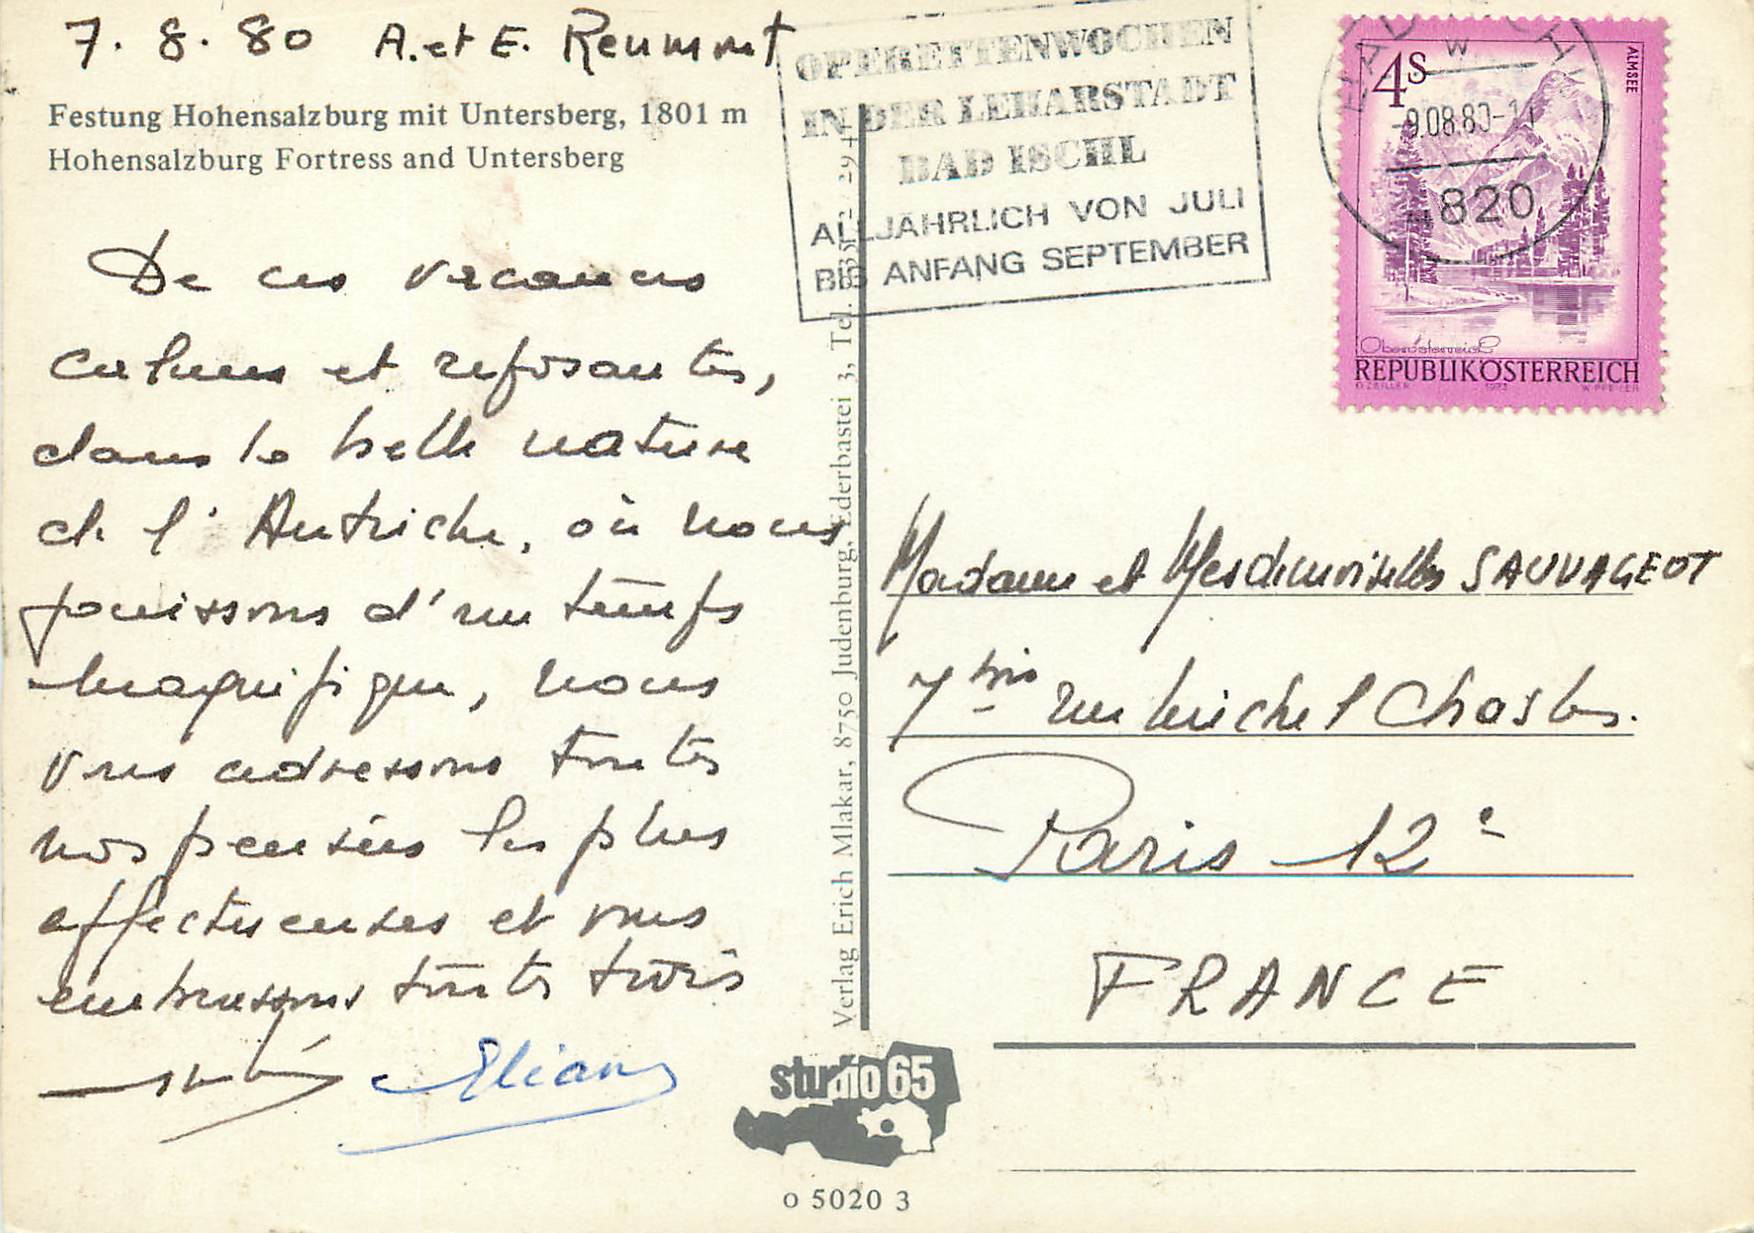 7. 8. 80 A. et E. Reumont
Festung Hohensalzburg mit Untersberg, 1801 m
Hohensalzburg Fortress and Untersberg
De ces vacances
calmes et reposantes,
dans la belle nature
de l'Autriche, où nous
jouissons d'un temps
magnifique, nous
vous adressons toutes
nos pensées les plus
affectueuses et vous
embrassons toutes trois
Eliane
OPERETTENWOCHEN
IN DER LEHARSTADT
BAD ISCHL
ALLJÄHRLICH VON JULI
BIS ANFANG SEPTEMBER
BAD ISCHL
-9.08.80-14
4820
4S
ALMSEE
Oberösterreich
REPUBLIK ÖSTERREICH
O.ZEILLER 1973 W.PFEILER
Verlag Erich Mlakar, 8750 Judenburg, Ederbastei 3, Tel.
Madame et Mesdemoiselles SAUVAGEOT
7 bis rue Michel Chasles.
Paris 12e
FRANCE
studio 65
o 5020 3